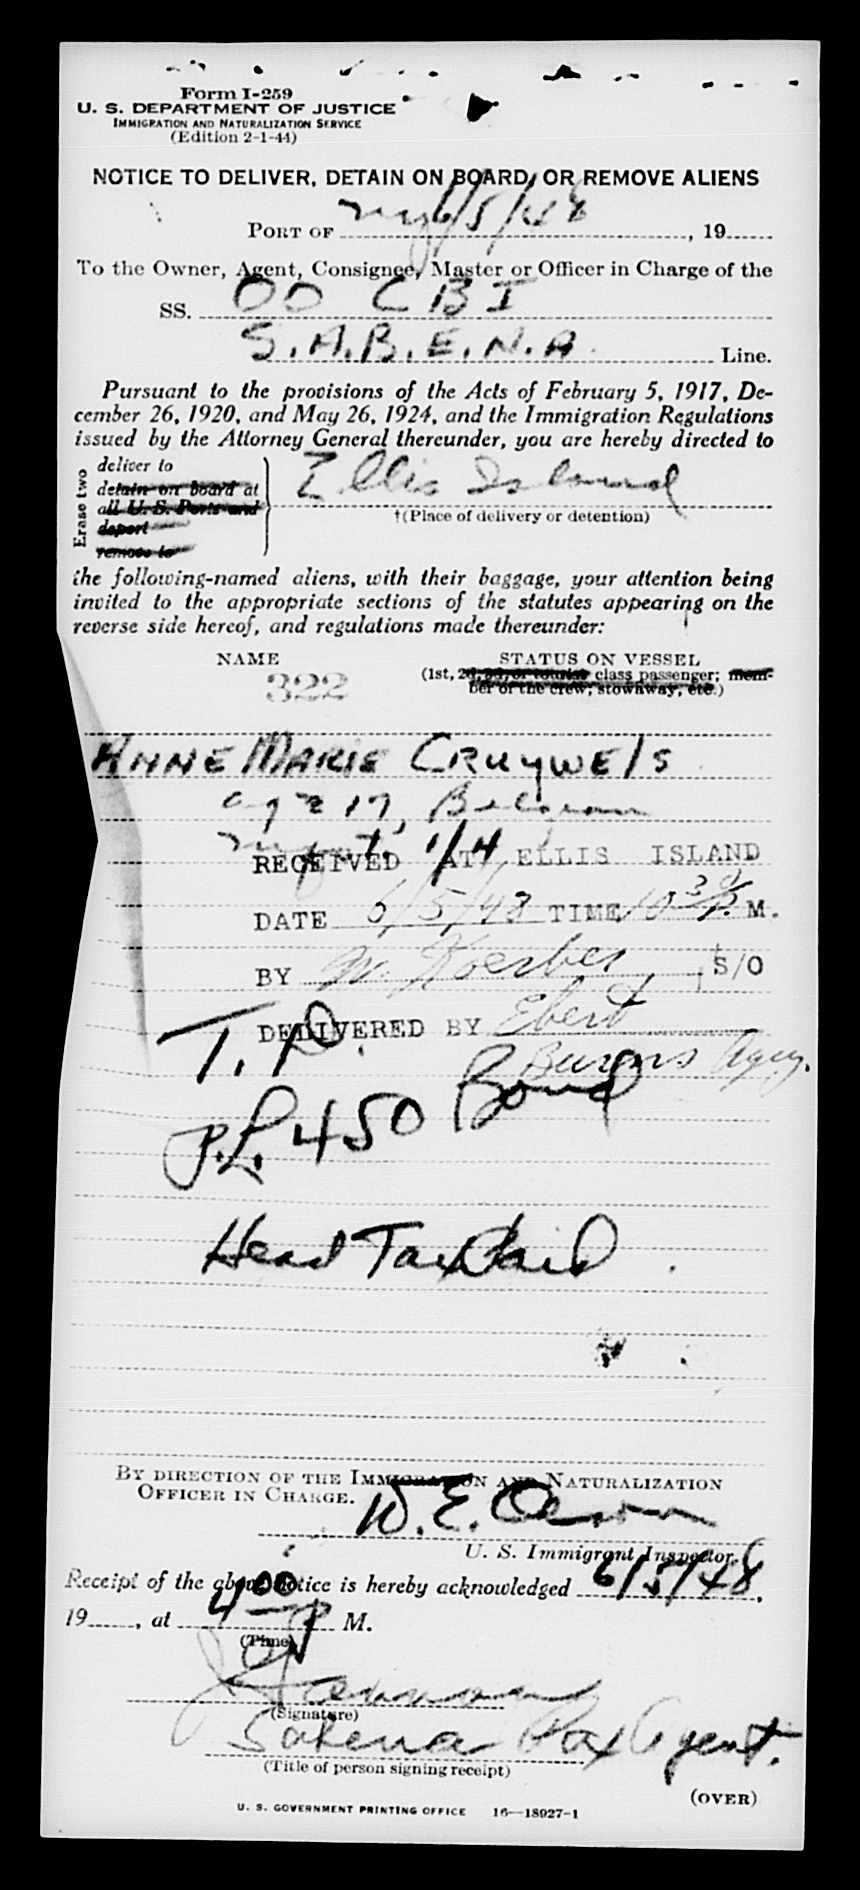 Form I-259
U. S. DEPARTMENT OF JUSTICE
IMMIGRATION AND NATURALIZATION SERVICE
(Edition 2-1-44)
NOTICE TO DELIVER, DETAIN ON BOARD, OR REMOVE ALIENS
PORT OF ny 6/5/48, 19
To the Owner, Agent, Consignee, Master or Officer in Charge of the
SS. OO CBI
S.A.B.E.N.A. Line.
Pursuant to the provisions of the Acts of February 5, 1917, De-
cember 26, 1920, and May 26, 1924, and the Immigration Regulations
issued by the Attorney General thereunder, you are hereby directed to
Erase two
deliver to
detain on board at
all U. S. Ports and
deport
remove to
Ellis Island
†(Place of delivery or detention)
the following-named aliens, with their baggage, your attention being
invited to the appropriate sections of the statutes appearing on the
reverse side hereof, and regulations made thereunder:
NAME
322
STATUS ON VESSEL
(1st, 2d, 3d, or tourist class passenger; mem-
ber of the crew; stowaway, etc.)
ANNE MARIE CRUYWELS
age 17, Belgian
RECEIVED AT ELLIS ISLAND
DATE 6/5/48 TIME 10 30 P. M.
BY M. Koerber S/O
DELIVERED BY Ebert
Burns Agcy.
T. D.
P.L. 450 Bond
Head Tax Paid
BY DIRECTION OF THE IMMIGRATION AND NATURALIZATION
OFFICER IN CHARGE.
W. E.
U. S. Immigrant Inspector.
Receipt of the above notice is hereby acknowledged 6/5/48,
19, at 4 00 P M.
(Time)
(Signature)
Sabena Pax Agent.
(Title of person signing receipt)
(OVER)
U. S. GOVERNMENT PRINTING OFFICE 16—18927-1